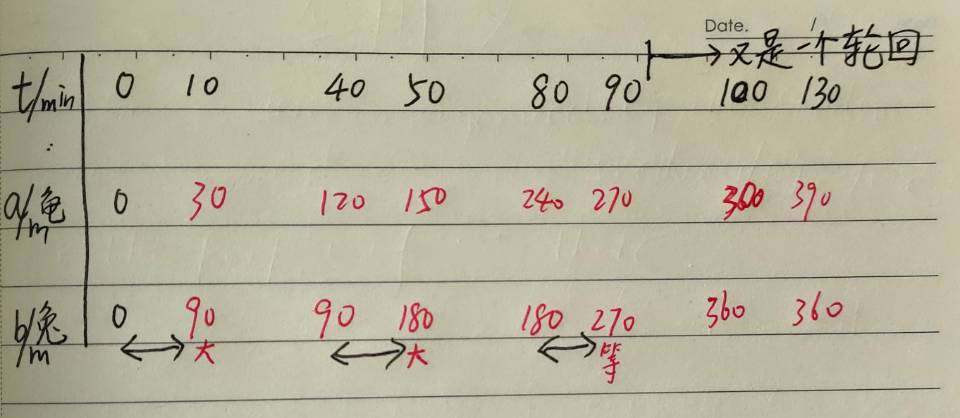 Date. /
→又是一个轮回
t/min 0 10 40 50 80 90 100 130
a/龟 m 0 30 120 150 240 270 300 390
b/兔 m 0 90 90 180 180 270 360 360
大 大 等